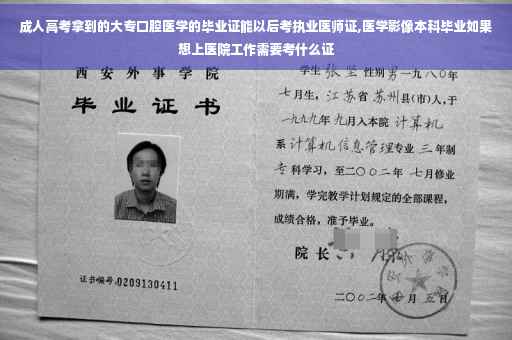 成人高考拿到的大专口腔医学的毕业证能以后考执业医师证,医学影像本科毕业如果
想上医院工作需要考什么证
西安外事学院
毕业证书
证书编号:0209130411
学生 张坚 性别 男 一九八〇年
七月生, 江苏省 苏州 县(市)人,于
一九九九年 九月入本院 计算机
系 计算机信息管理专业 三 年制
专 科学习, 至二〇〇二年 七月修业
期满, 学完教学计划规定的全部课程,
成绩合格, 准予毕业。
院长
二〇〇二年 七月 五日